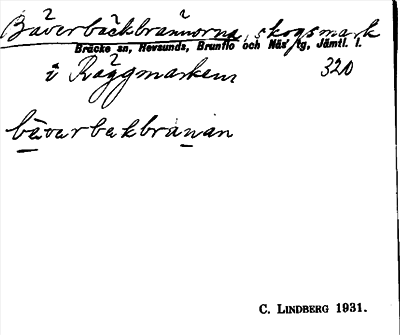 Bäverbäckbrännorna, skogsmark
Bräcke sn, Revsunds, Brunflo och Näs' tg, Jämtl. l.
i Räggmarken 320
bävarbakbranan
C. LINDBERG 1931.